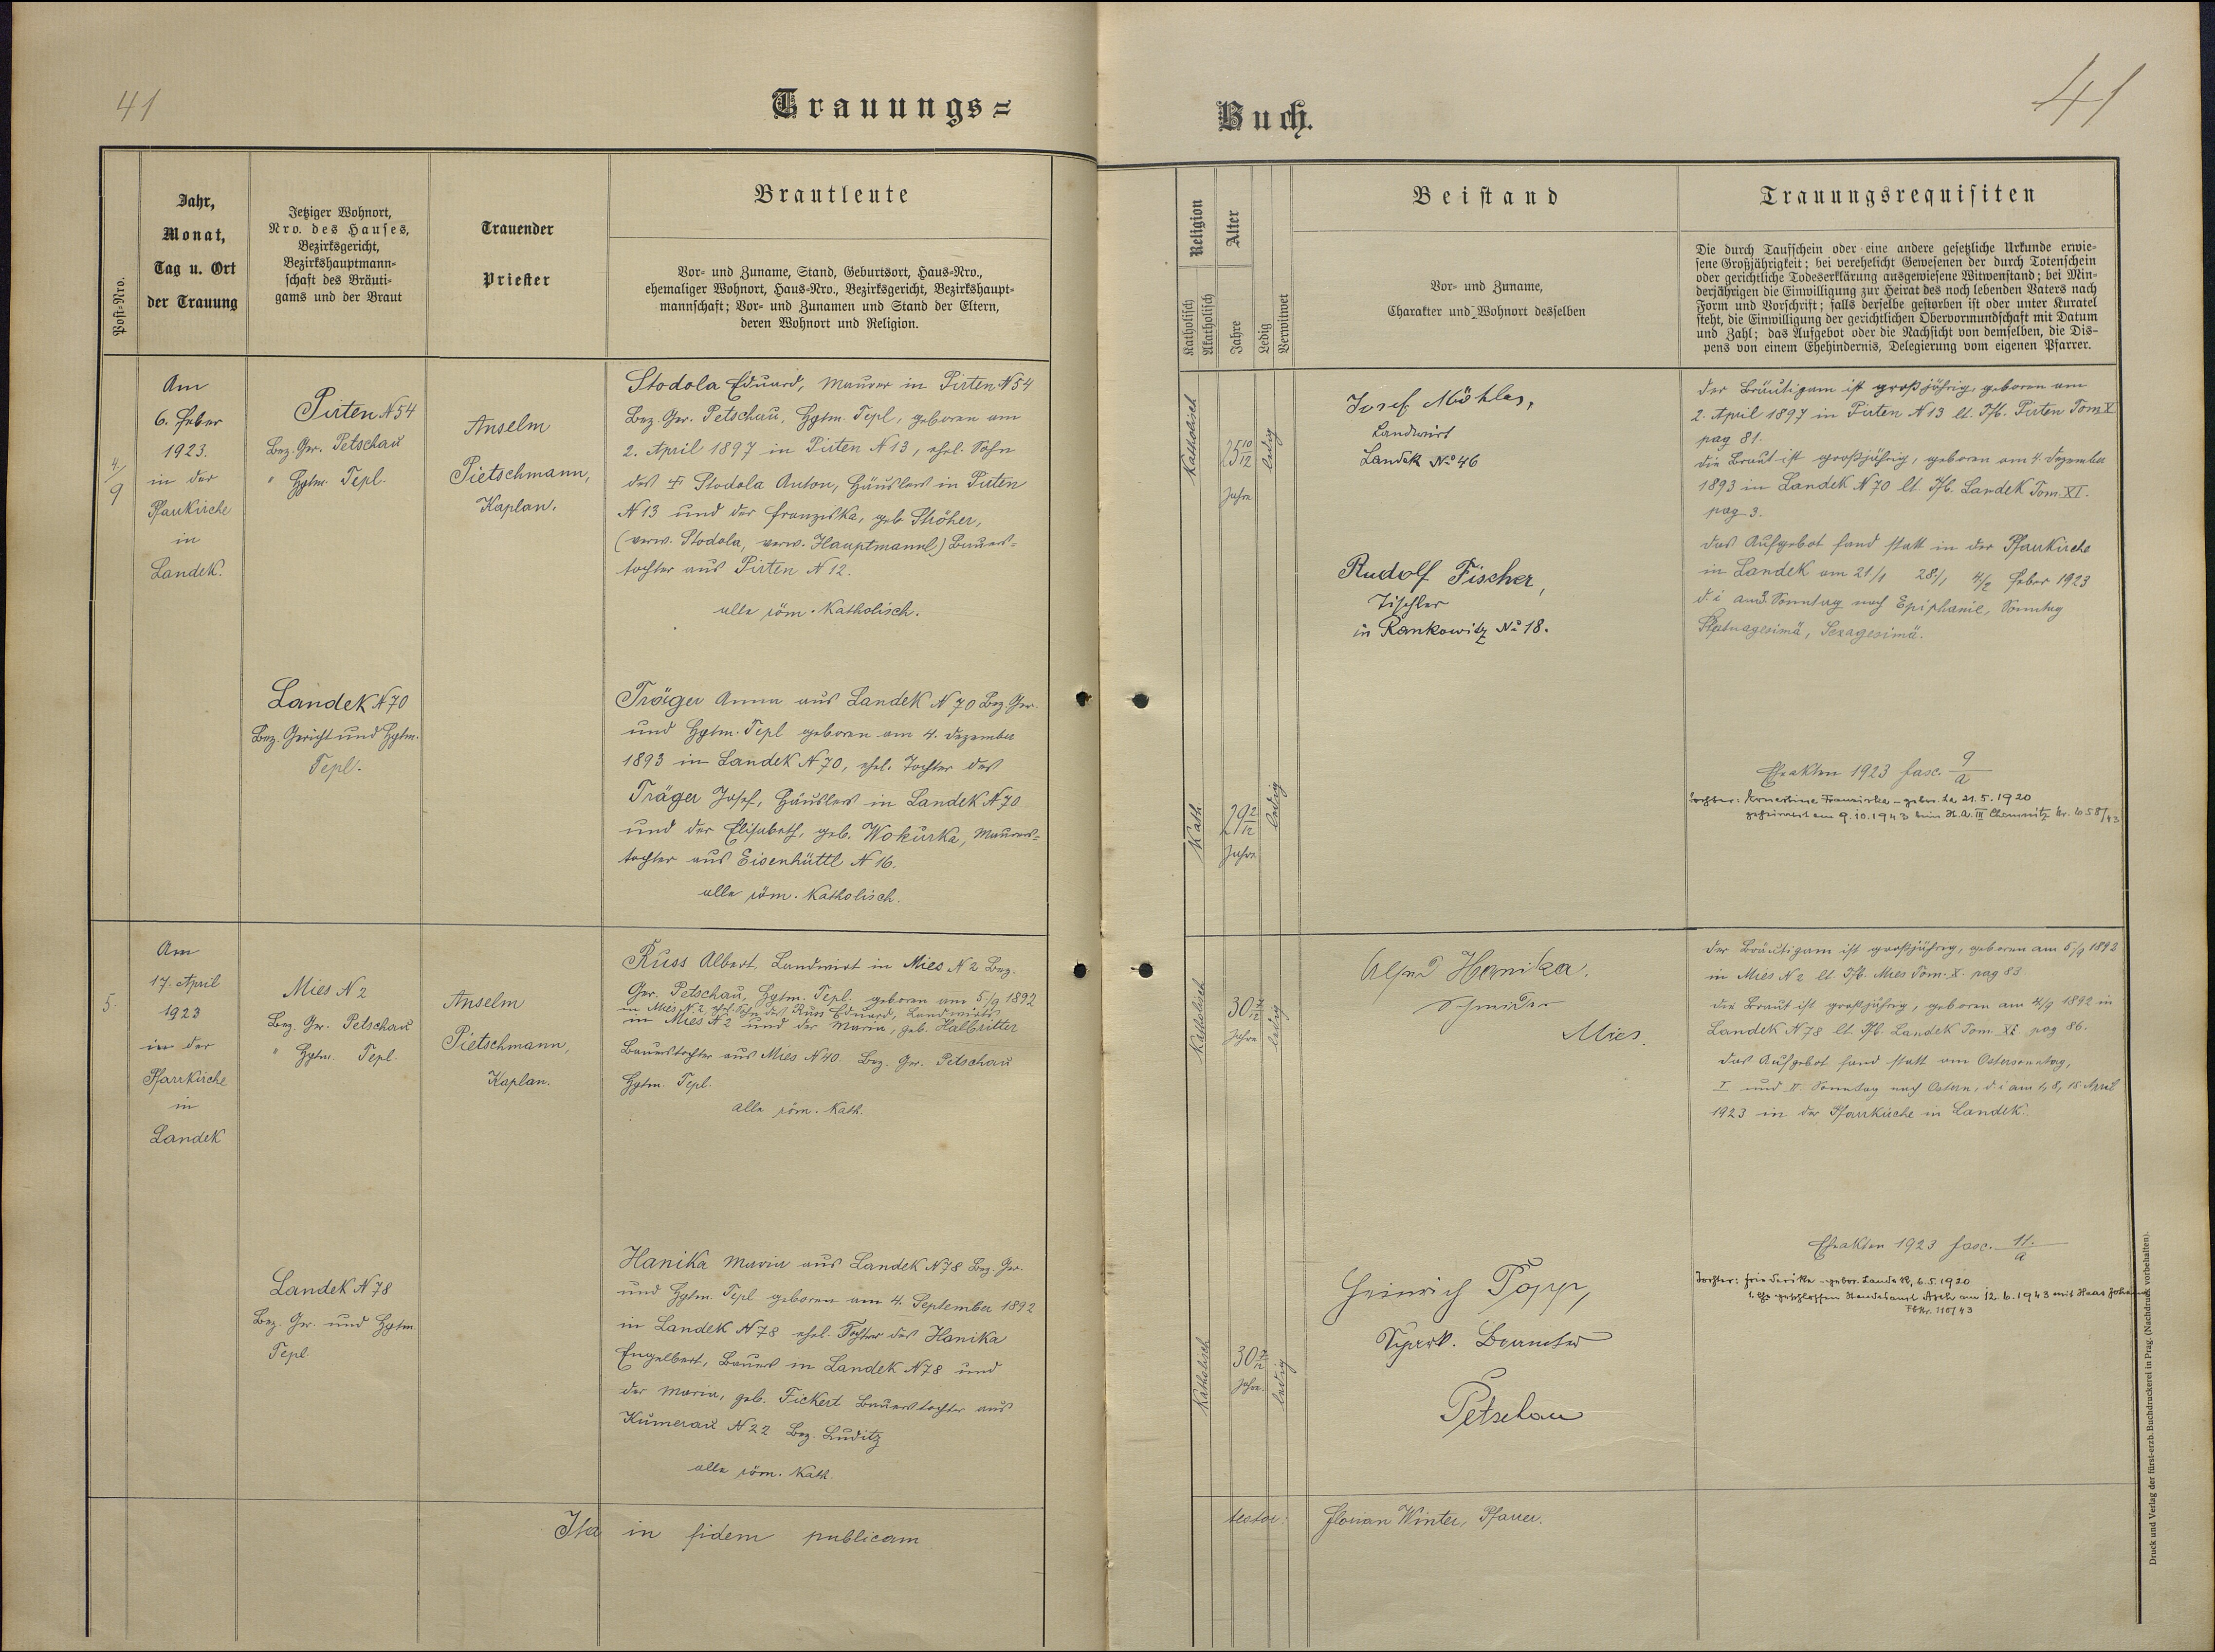 41
Trauungs=
Buch.
41
Post-Nro.
Jahr,
Monat,
Tag u. Ort
der Trauung
Jetziger Wohnort,
Nro. des Hauses,
Bezirksgericht,
Bezirkshauptmann-
schaft des Bräuti-
gams und der Braut
Trauender
Priester
Brautleute
Vor- und Zuname, Stand, Geburtsort, Haus-Nro.,
ehemaliger Wohnort, Haus-Nro., Bezirksgericht, Bezirkshaupt-
mannschaft; Vor- und Zunamen und Stand der Eltern,
deren Wohnort und Religion.
Religion
Katholisch
Akatholisch
Alter
Jahre
Ledig
Verwitwet
Beistand
Vor- und Zuname,
Charakter und Wohnort desselben
Trauungsrequisiten
Die durch Taufschein oder eine andere gesetzliche Urkunde erwie-
sene Großjährigkeit; bei verehelicht Gewesenen der durch Totenschein
oder gerichtliche Todeserklärung ausgewiesene Witwenstand; bei Min-
derjährigen die Einwilligung zur Heirat des noch lebenden Vaters nach
Form und Vorschrift; falls derselbe gestorben ist oder unter Kuratel
steht, die Einwilligung der gerichtlichen Obervormundschaft mit Datum
und Zahl; das Aufgebot oder die Nachsicht von demselben, die Dis-
pens von einem Ehehindernis, Delegierung vom eigenen Pfarrer.
4/9
Am
6. Feber
1923.
in der
Pfarrkirche
in
Landek.
Pirten N 54
Bez. Ger. Petschau
" Hptm. Tepl.
Anselm
Pietschmann,
Kaplan.
Stodola Eduard, Maurer in Pirten N 54
Bez. Ger. Petschau, Hptm. Tepl, geboren am
2. April 1897 in Pirten N 13, ehel. Sohn
des † Stodola Anton, Häuslers in Pirten
N 13 und der Franziska, geb Ströher,
(verw. Stodola, verw. Hauptmannl) Bauers=
tochter aus Pirten N 12.
alle röm. Katholisch.
Landek N 70
Bez. Gericht und Hptm.
Tepl.
Träger Anna aus Landek N 70 Bez. Ger.
und Hptm. Tepl geboren am 4. Dezember
1893 in Landek N 70, ehel. Tochter des
Träger Josef, Häuslers in Landek N 70
und der Elisabeth, geb. Wokurka, Maurers=
tochter aus Eisenhüttl N 16.
alle röm. Katholisch.
Katholisch
25 10/12
Jahre
ledig
Josef Möhler,
Landwirt
Landek No 46
Rudolf Fischer,
Tischler
in Rankowitz No 18.
Kath.
29 2/12
Jahre
ledig
Der Bräutigam ist großjährig, geboren am
2. April 1897 in Pirten N 13 lt. Tfb. Pirten Tom X
pag 81.
die Braut ist großjährig, geboren am 4. Dezember
1893 in Landek N 70 lt. Tfb. Landek Tom. XI.
pag 3.
das Aufgebot fand statt in der Pfarrkirche
in Landek am 21/1 28/1 4/2 Feber 1923
d. i am 3. Sonntag nach Epiphanie, Sonntag
Septuagesimä, Sexagesimä.
Eheakten 1923 fasc. 9/a
Tochter: Ernestine Franziska - gebor. La 21.5.1920
geheiratet am 9.10.1943 beim St. A. IX Chemnitz Nr. 658/43
5.
Am
17. April
1923
in der
Pfarrkirche
in
Landek
Mies N 2
Bez. Ger. Petschau
" Hptm. Tepl.
Anselm
Pietschmann,
Kaplan.
Russ Albert, Landwirt in Mies N 2 Bez.
Ger. Petschau, Hptm. Tepl. geboren am 5/9 1892
in Mies N. 2 ehel. Sohn des Russ Eduard, Landwirts
in Mies N 2 und der Maria, geb. Halbritter
Bauerstochter aus Mies N 40. Bez. Ger. Petschau
Hptm. Tepl.
alle röm. Kath.
Landek N 78
Bez. Ger. und Hptm.
Tepl
Hanika Maria aus Landek N 78 Bez. Ger.
und Hptm. Tepl geboren am 4. September 1892
in Landek N 78 ehel. Tochter des Hanika
Engelbert, Bauers in Landek N 78 und
der Maria, geb. Fickert Bauerstochter aus
Kumerau N 22 Bez. Luditz
alle röm. Kath.
Katholisch
30 7/12
Jahre
ledig
Alfred Hanika.
Schneider
Mies.
Katholisch
30 7/12
Jahre.
ledig
Heinrich Popp,
Spark. Beamter
Petschau
Der Bräutigam ist großjährig, geboren am 5/9 1892
in Mies N 2 lt. Tfb. Mies Tom. X. pag 83.
die Braut ist großjährig, geboren am 4/9 1892 in
Landek N 78 lt. Tfb. Landek Tom. XI pag 86.
das Aufgebot fand statt am Ostersonntag,
I und II. Sonntag nach Ostern, d. i am 1, 8, 15 April
1923 in der Pfarrkirche in Landek.
Eheakten 1923 fasc. 11./a
Tochter: Friederike - gebor. Landek, 6.5.1920
1. Ehe geschlossen Standesamt Asch am 12.6.1943 mit Haas Johann
Fb. Nr. 110/43
Ita in fidem publicam
testor: Florian Winter, Pfarrer.
Druck und Verlag der fürst-erzb. Buchdruckerei in Prag. (Nachdruck vorbehalten).